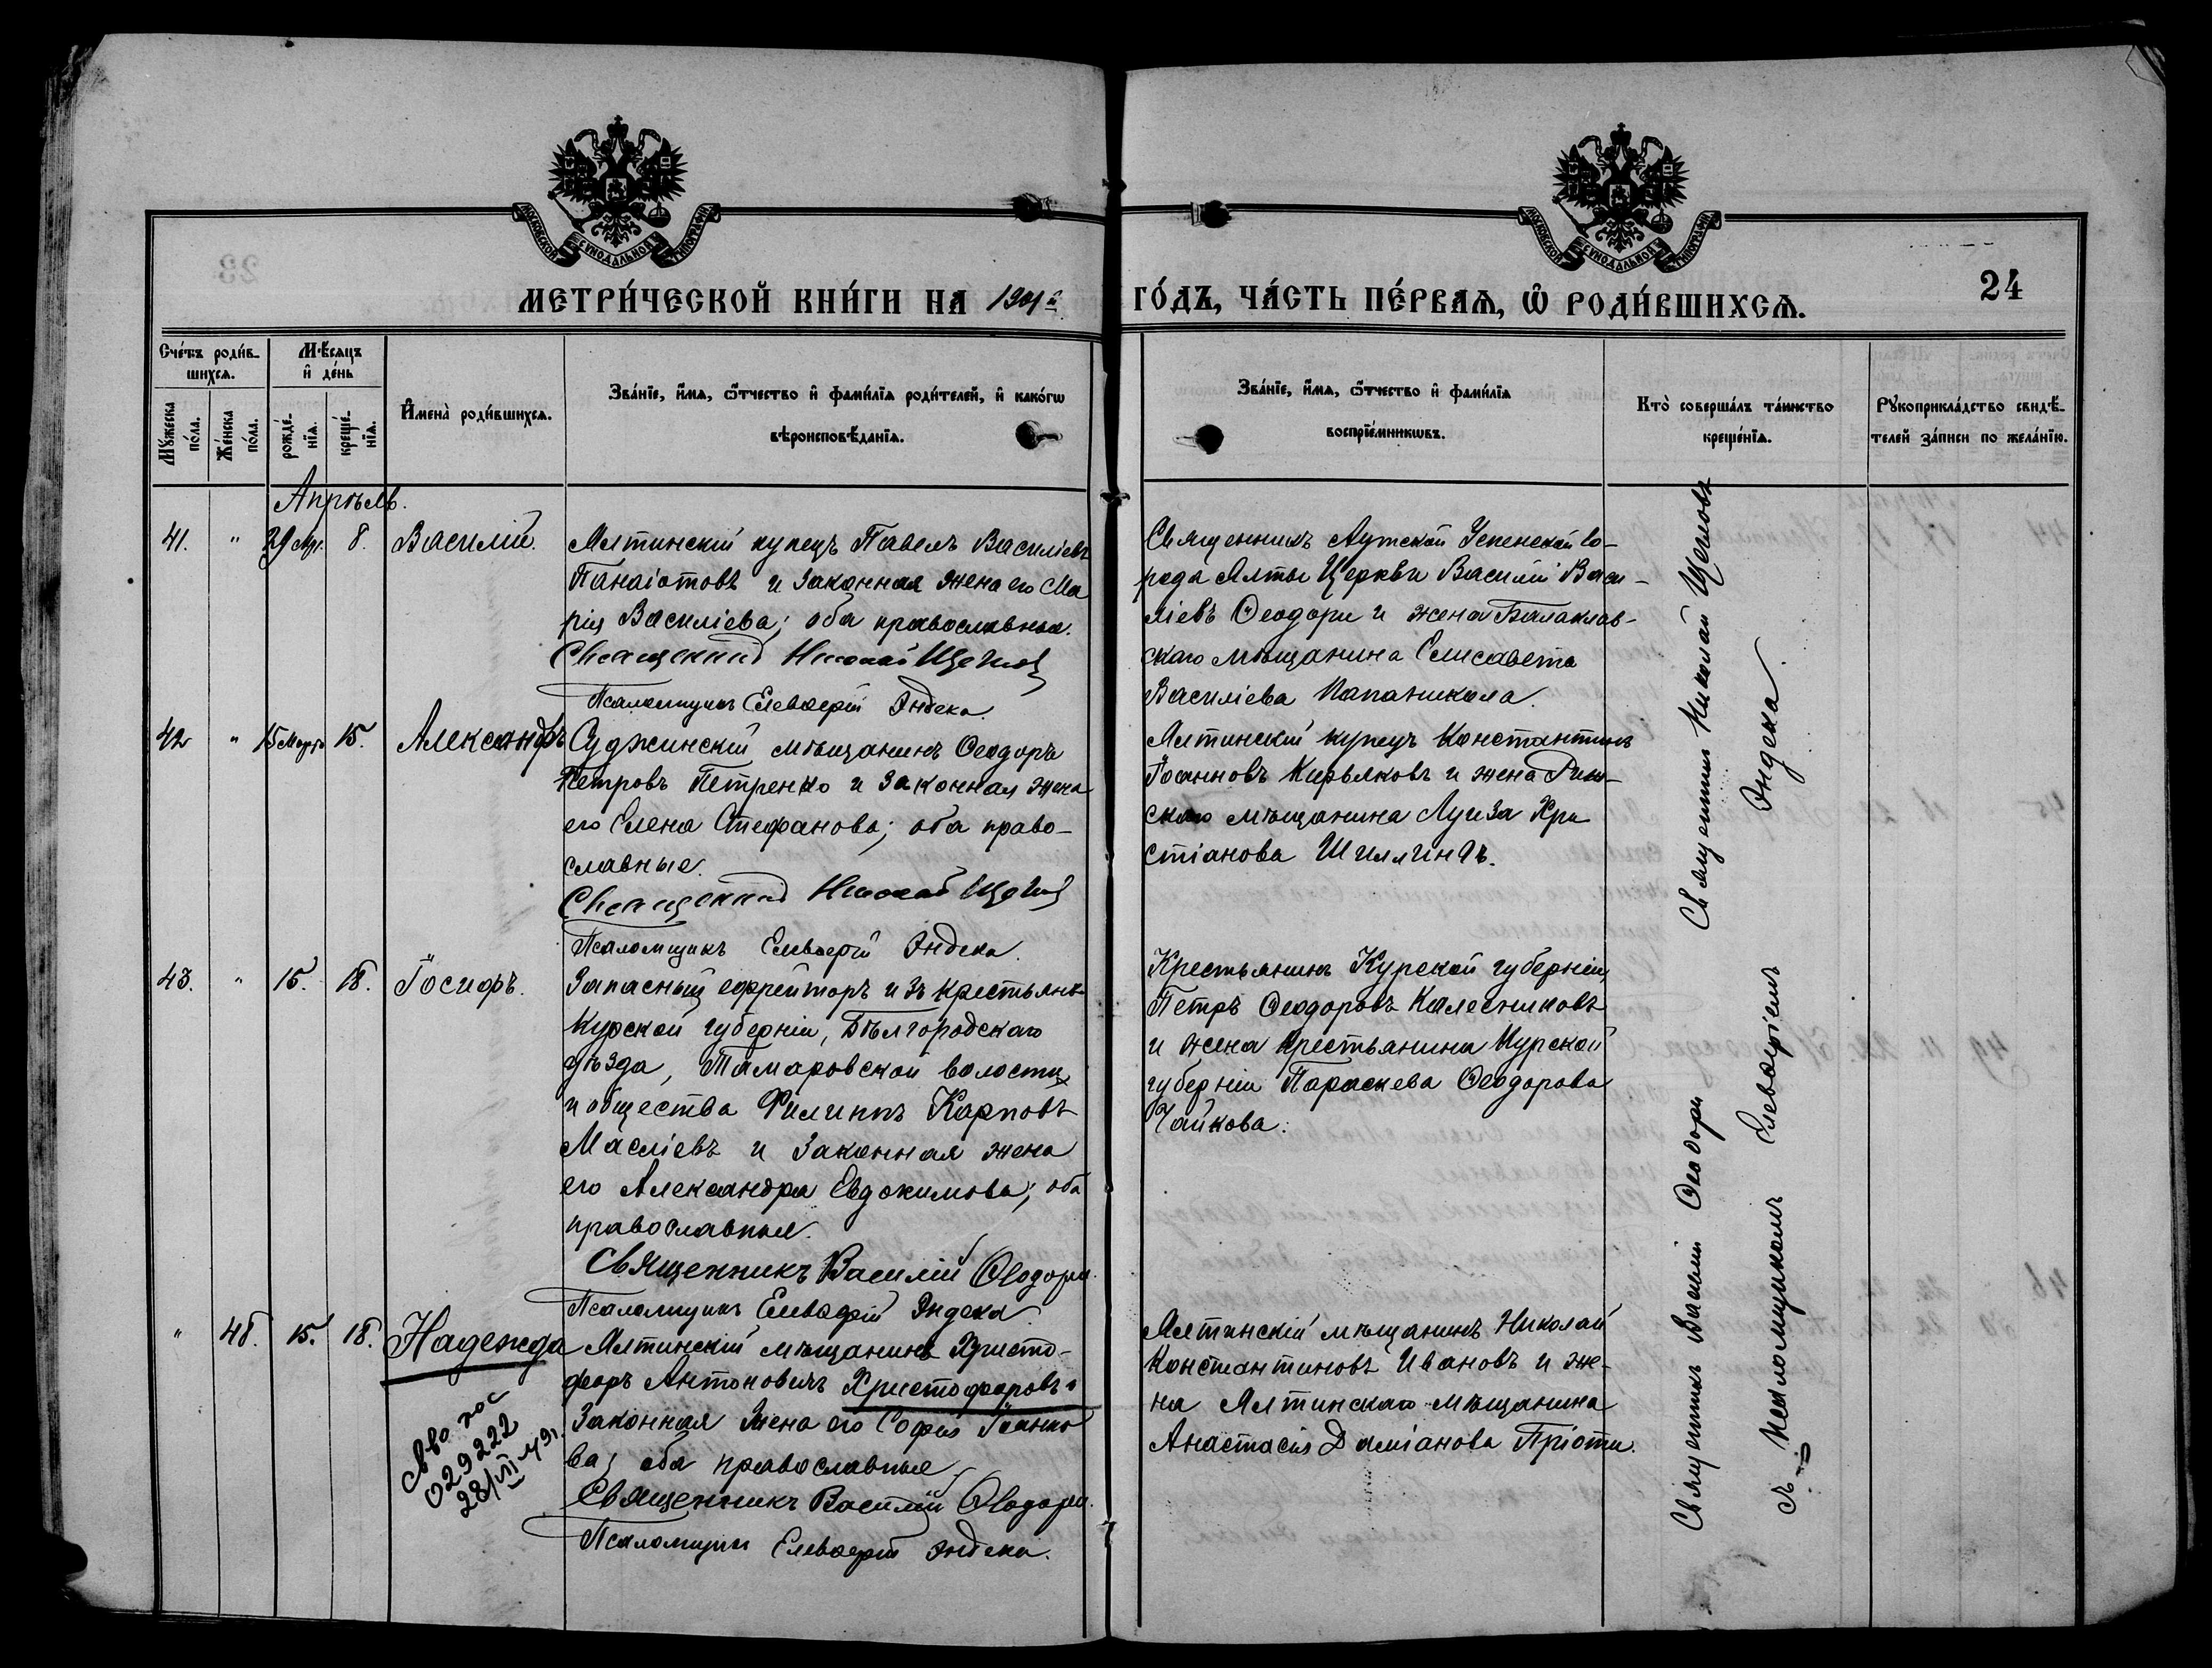 МОСКОВСКОЙ СѴНОДАЛЬНОЙ ТИПОГРАФІИ
МОСКОВСКОЙ СѴНОДАЛЬНОЙ ТИПОГРАФІИ
МЕТРИ́ЧЕСКОЙ КНИ́ГИ НА 1901й
ГО́ДЪ, ЧА́СТЬ ПЕ́РВАѦ, Ѿ РОДИ́ВШИХСѦ.
24
Сче́тъ роди́в-
шихсѧ.
Мѣ́сѧцъ
и҆ де́нь
Мꙋ́жеска
по́ла.
Же́нска
по́ла.
рожде́-
нїѧ.
креще́-
нїѧ.
И҆мена̀ роди́вшихсѧ.
Зва́нїе, и҆́мѧ, ѻ҆́тчество и҆ фами́лїѧ роди́телей, и҆ како́гѡ
вѣроисповѣ́данїѧ.
Зва́нїе, и҆́мѧ, ѻ҆́тчество и҆ фами́лїѧ
воспрїе́мникѡвъ.
Кто̀ соверша́лъ та́инство
креще́нїѧ.
Рꙋкоприкла́дство свидѣ́-
телей за́писи по жела́нїю.
Апрѣль.
41. " 29 8. Василій.
Ялтинскій купецъ Павелъ Василіевъ
Панаіотовъ и законная жена его Ма
рія Василіева; оба православные.
Священникъ Николай Щегловъ
Псаломщикъ Елевѳерій Эндека.
Священникъ Аутской Успенской го-
рода Ялты Церкви Василій Васи-
ліевъ Ѳеодори и жена Балаклав-
скаго мѣщанина Елисавета
Василіева Папаникола.
42 " 15 Марта 15. Александръ
Суджинскій мѣщанинъ Ѳеодоръ
Петровъ Петренко и законная жена
его Елена Стефанова; оба право-
славные.
Священникъ Николай Щегловъ
Псаломщикъ Елевѳерій Эндека.
Ялтинскій купецъ Константинъ
Іоанновъ Кирьяковъ и жена Риж-
скаго мѣщанина Луиза Хри
стіанова Шиллингъ.
43. " 15. 18. Іосифъ.
Запасный ефрейторъ изъ крестьянъ
Курской губерніи, Бѣлгородскаго
уѣзда, Тамаровской волости
и общества Филиппъ Карповъ
Масліевъ и законная жена
его Александра Евдокимова; оба
православные.
Священникъ Василій Ѳеодори.
Псаломщикъ Елевѳерій Эндека.
Крестьянинъ Курской губерніи,
Петръ Ѳеодоровъ Калесниковъ
и жена крестьянина Курской
губерніи Параскева Ѳеодорова
Чайкова.
" 15. 18. Надежда
Ялтинскій мѣщанинъ Христо-
форъ Антоновичъ Христофоровъ и
законная жена его Софія Іоанно
ва; оба православные
Священникъ Василій Ѳеодори.
Псаломщикъ Елевѳерій Эндека.
029222
Ялтинскій мѣщанинъ Николай
Константиновъ Ивановъ и же-
на Ялтинскаго мѣщанина
Анастасія Даміанова Пріоти.
Священникъ Василій Ѳеодори Священникъ Николай Щегловъ
съ псаломщикомъ Елевѳеріемъ Эндека.